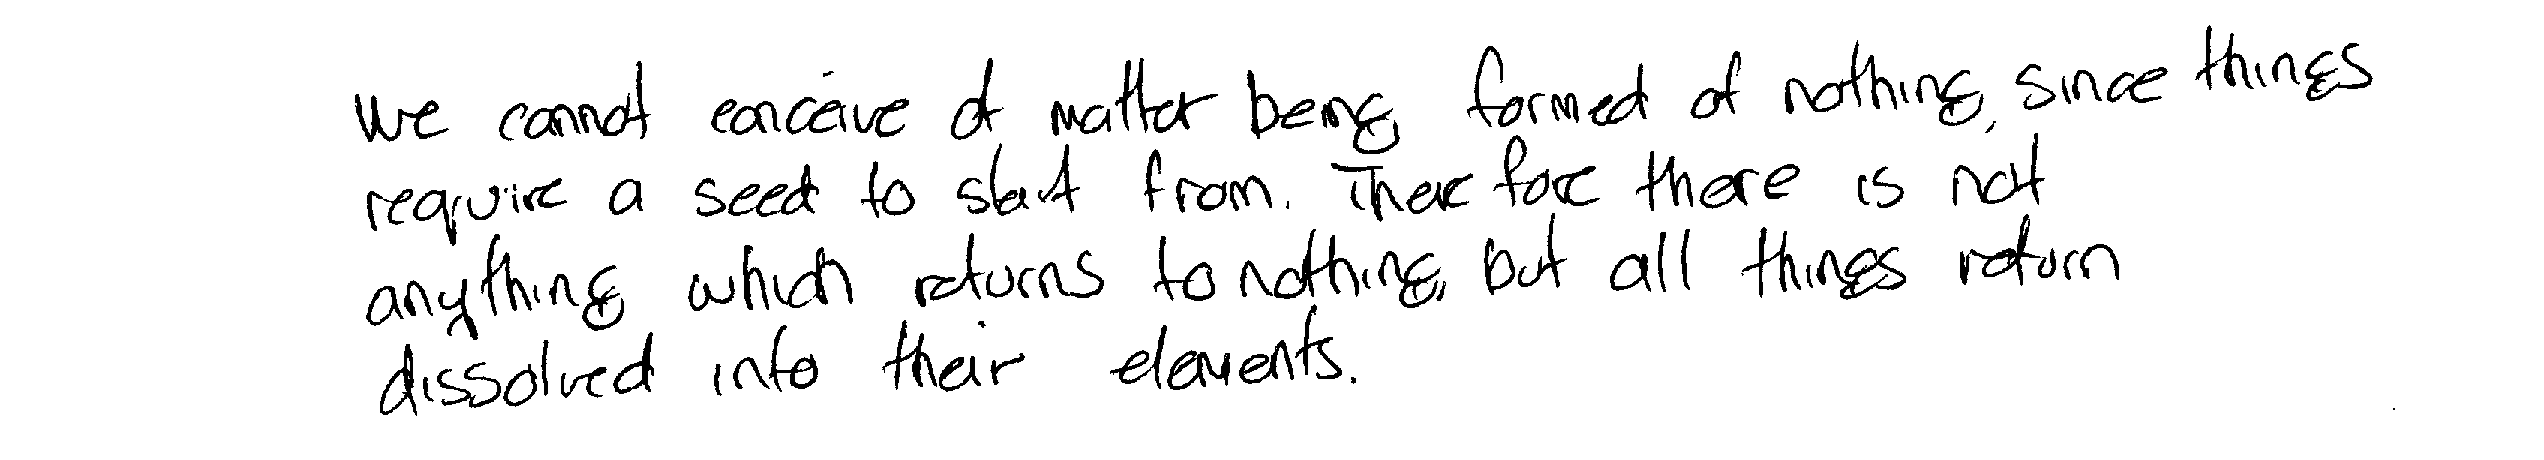 We cannot conceive of matter being formed of nothing, since things
require a seed to start from. Therefore there is not
anything which returns to nothing, but all things return
dissolved into their elements.